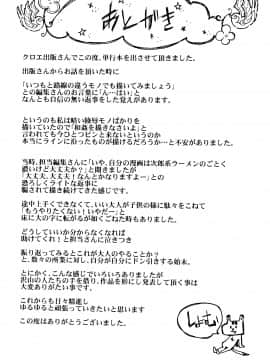 あとがき
クロエ出版さんでこの度、単行本を出させて頂きました。
出版さんからお話を頂いた時に
「いつもと路線の違うモノでも描いてみましょう」
との編集さんのお言葉に「ん…はい」と
なんとも自信の無い返事をした覚えがあります。
というのも私は結い陵辱モノばかりを
描いていたので「和姦を描きなさいよ」と
言われてもウひとつピンと来ないというのか
本当にラインに沿ったものが描けるだろうか…と不安がありました。
当時、担当編集さんに「いや、自分の漫画は次郎系ラーメンのごとく
濃いけど大丈夫か?」と聞きましたが
「大丈夫、大丈夫、なんとかなりますよー」との
恐ろしくライトな返事に
騙されて描き続けてきた感じです。
途中上手くできなくて、いい大人が子供の様に駄々をこねて
「もうやりたくない!いやだー」と
床に大の字に転がるが如くごねた時もありました。
どうしていいか分からなくなれば
助けてくれ!と担当さんに泣きつき
振り返ってみるとこれが大人のやることか?
と、数々の所業に対し、自分が自分にドン引きする始末。
とにかく、こんな感じでいろいろありましたが
沢山の人たちの手を借り、作品を形にし発表して頂く事は
大変ありがたい事です。
これからも日々精進し
ゆるゆると頑張っていきたいと思います
この度はありがとうございました。